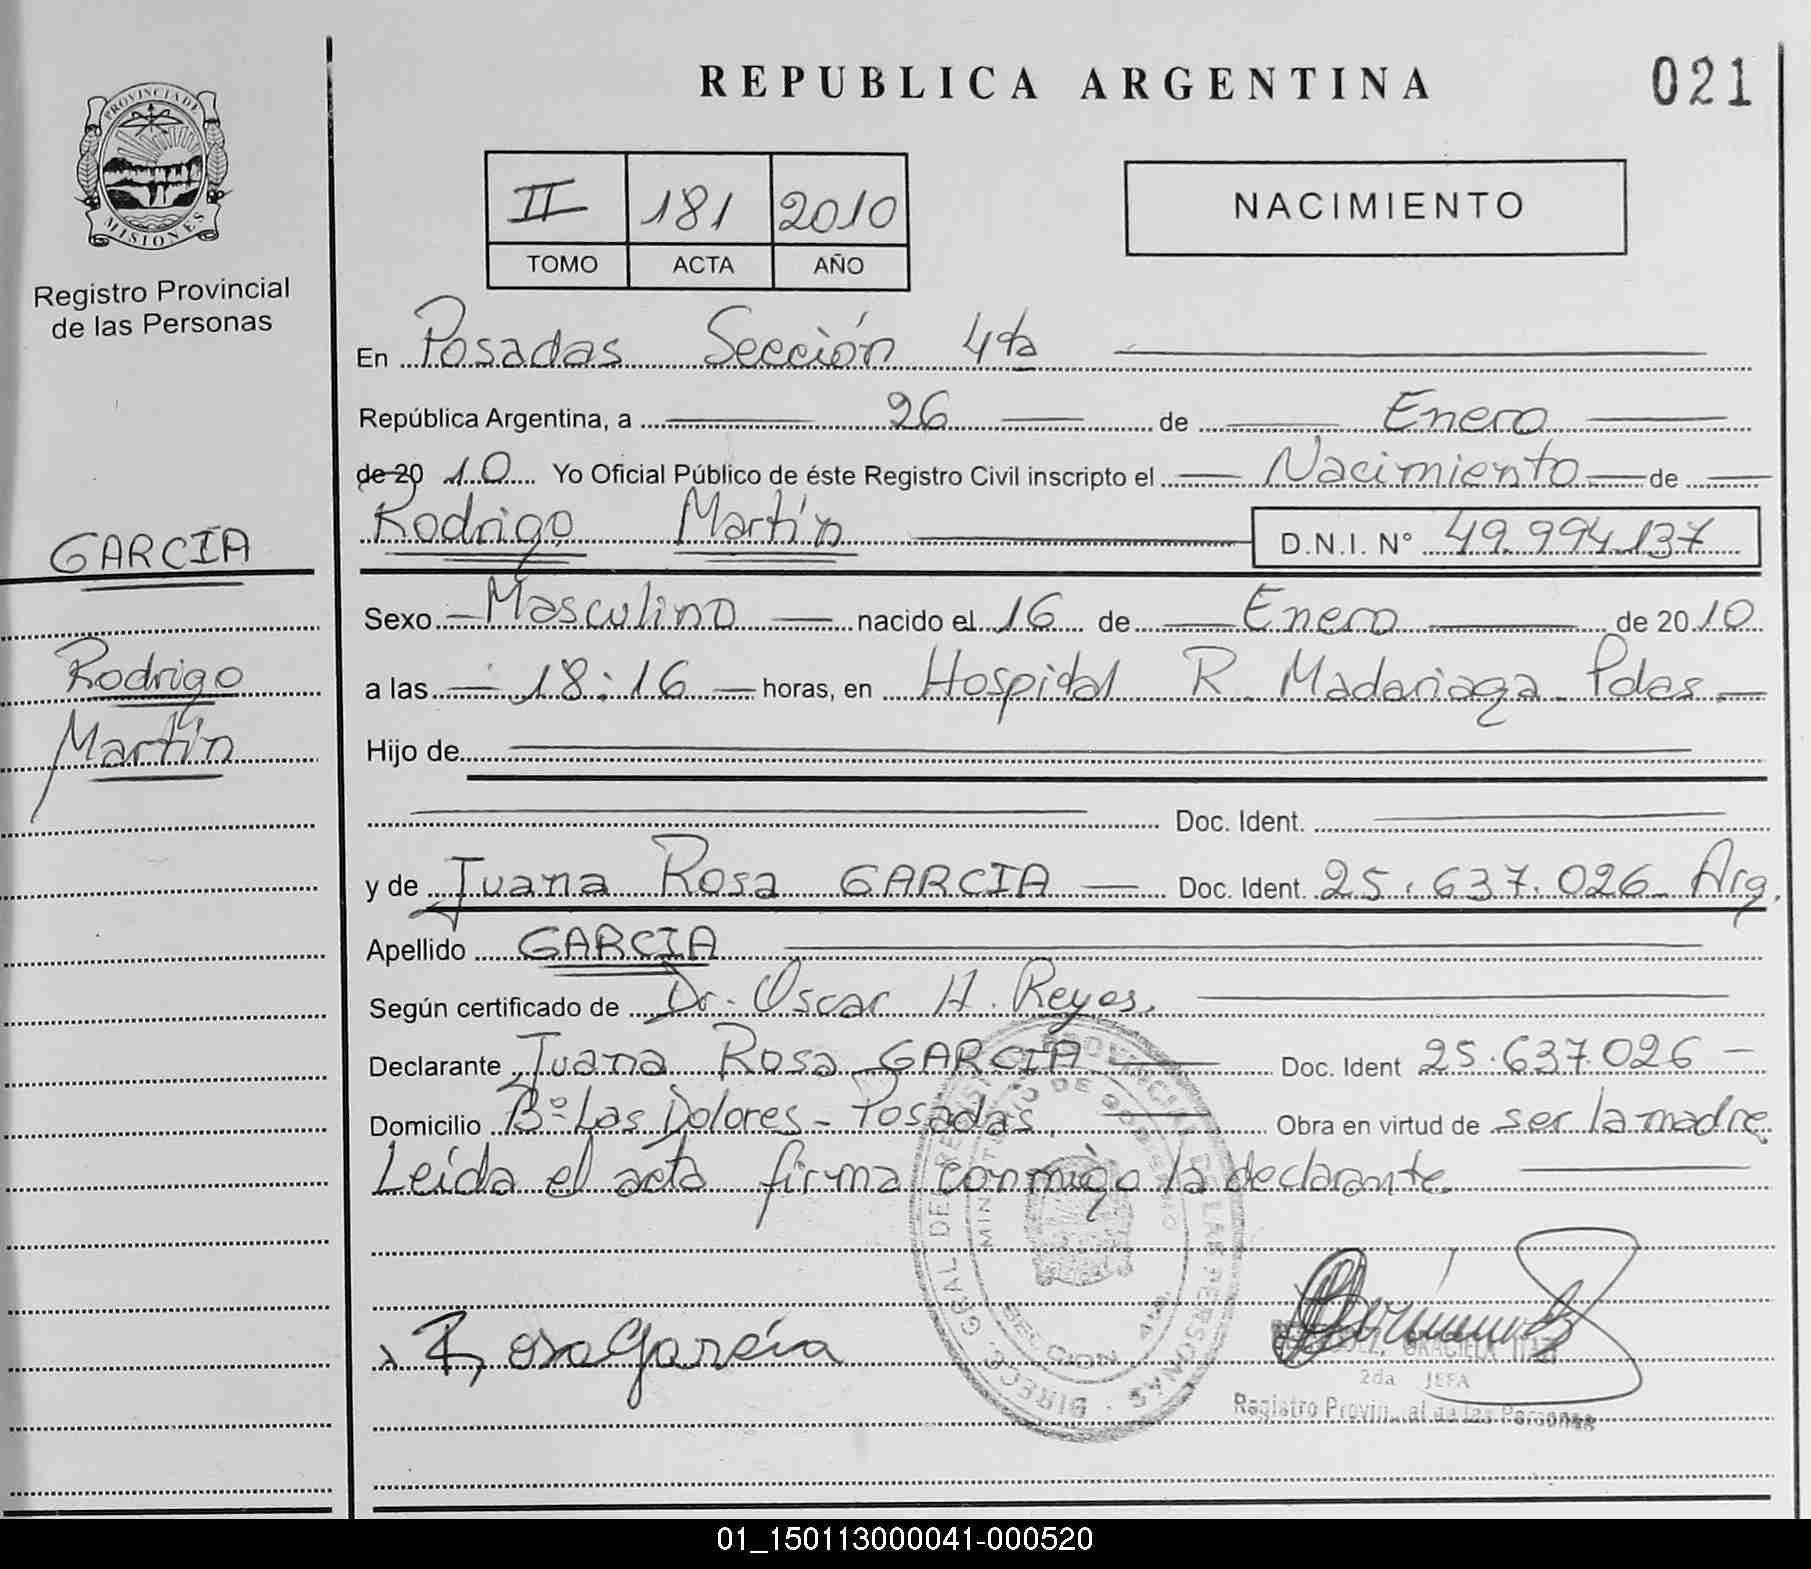 REPUBLICA ARGENTINA
021
PROVINCIA DE
MISIONES
Registro Provincial
de las Personas
II 181 2010
TOMO ACTA AÑO
NACIMIENTO
En Posadas Sección 4ta
República Argentina, a 26 de Enero
de 20 10 Yo Oficial Público de éste Registro Civil inscripto el Nacimiento de
Rodrigo Martín D.N.I. N° 49.994.137
GARCÍA
Rodrigo
Martín
Sexo Masculino nacido el 16 de Enero de 2010
a las 18:16 horas, en Hospital R. Madariaga - Pdas
Hijo de
Doc. Ident.
y de Juana Rosa GARCIA Doc. Ident. 25.637.026 - Arg.
Apellido GARCIA
Según certificado de Dr. Oscar H. Reyes.
Declarante Juana Rosa GARCIA Doc. Ident 25.637.026 -
Domicilio B° Las Dolores - Posadas, Obra en virtud de ser la madre
Leída el acta firma conmigo la declarante
Rosa García
GRACIELA
2da JEFA
Registro Provincial de las Personas
01_150113000041-000520